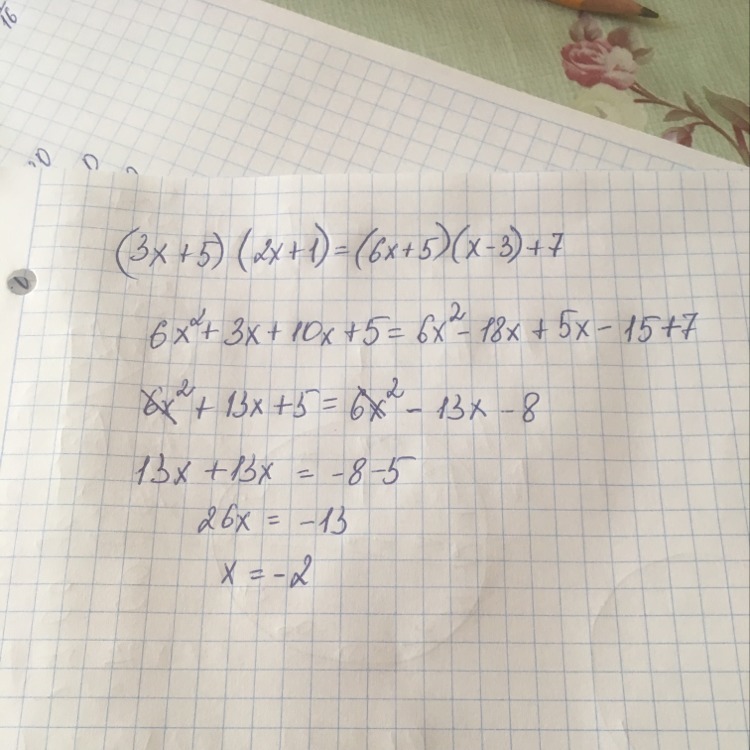 16
(3x+5)(2x+1)=(6x+5)(x-3)+7
6x²+3x+10x+5=6x²-18x+5x-15+7
6x²+13x+5=6x²-13x-8
13x+13x=-8-5
26x=-13
x=-2